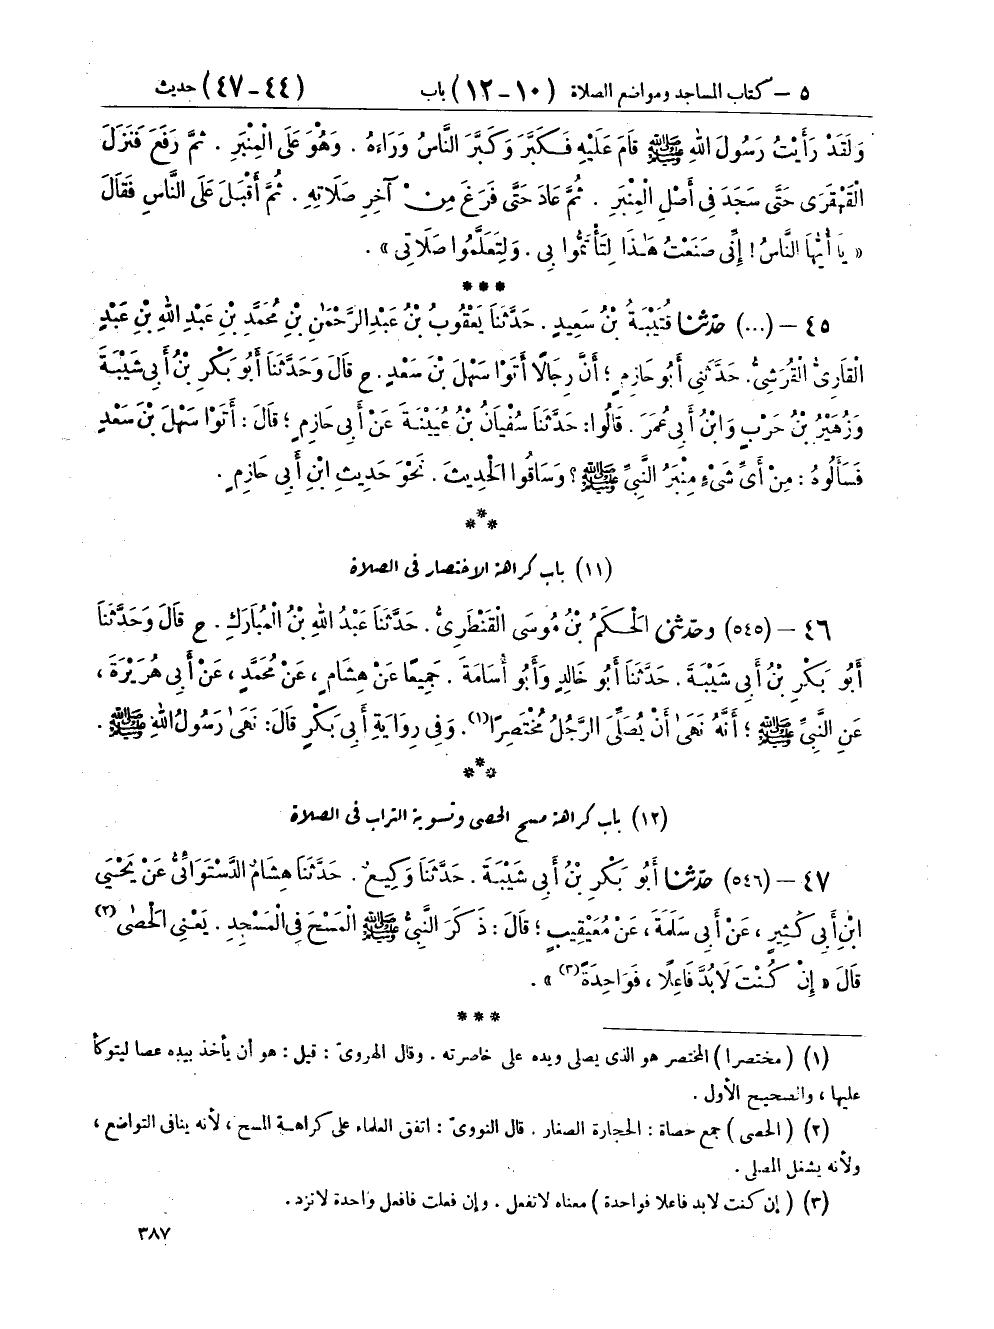 ٥ – كتاب المساجد ومواضع الصلاة (١٠-١٢) باب (٤٤-٤٧) حديث
وَلَقَدْ رَأَيْتُ رَسُولَ اللهِ ﷺ قَامَ عَلَيْهِ فَكَبَّرَ وَكَبَّرَ النَّاسُ وَرَاءَهُ . وَهُوَ عَلَى الْمِنْبَرِ . ثُمَّ رَفَعَ فَنَزَلَ
الْقَهْقَرَى حَتَّى سَجَدَ فِي أَصْلِ الْمِنْبَرِ . ثُمَّ عَادَ حَتَّى فَرَغَ مِنْ آخِرِ صَلَاتِهِ . ثُمَّ أَقْبَلَ عَلَى النَّاسِ فَقَالَ
« يَا أَيُّهَا النَّاسُ! إِنِّي صَنَعْتُ هَٰذَا لِتَأْتَمُّوا بِي . وَلِتَعَلَّمُوا صَلَاتِي » .
***
٤٥ – (...) حدّثنا قُتَيْبَةُ بْنُ سَعِيدٍ . حَدَّثَنَا يَعْقُوبُ بْنُ عَبْدِ الرَّحْمَٰنِ بْنِ مُحَمَّدِ بْنِ عَبْدِ اللهِ بْنِ عَبْدٍ
الْقَارِيُّ الْقُرَشِيُّ . حَدَّثَنِي أَبُو حَازِمٍ ؛ أَنَّ رِجَالًا أَتَوْا سَهْلَ بْنَ سَعْدٍ . ح قَالَ وَحَدَّثَنَا أَبُو بَكْرِ بْنُ أَبِي شَيْبَةَ
وَزُهَيْرُ بْنُ حَرْبٍ وَابْنُ أَبِي عُمَرَ . قَالُوا: حَدَّثَنَا سُفْيَانُ بْنُ عُيَيْنَةَ عَنْ أَبِي حَازِمٍ ؛ قَالَ : أَتَوْا سَهْلَ بْنَ سَعْدٍ
فَسَأَلُوهُ : مِنْ أَيِّ شَيْءٍ مِنْبَرُ النَّبِيِّ ﷺ ؟ وَسَاقُوا الْحَدِيثَ . نَحْوَ حَدِيثِ ابْنِ أَبِي حَازِمٍ .
***
(١١) باب كراهة الاختصار في الصلاة
٤٦ – (٥٤٥) وحدّثني الْحَكَمُ بْنُ مُوسَى الْقَنْطَرِيُّ . حَدَّثَنَا عَبْدُ اللهِ بْنُ الْمُبَارَكِ . ح قَالَ وَحَدَّثَنَا
أَبُو بَكْرِ بْنُ أَبِي شَيْبَةَ . حَدَّثَنَا أَبُو خَالِدٍ وَأَبُو أُسَامَةَ . جَمِيعًا عَنْ هِشَامٍ ، عَنْ مُحَمَّدٍ ، عَنْ أَبِي هُرَيْرَةَ ،
عَنِ النَّبِيِّ ﷺ ؛ أَنَّهُ نَهَىٰ أَنْ يُصَلِّيَ الرَّجُلُ مُخْتَصِرًا(١) . وَفِي رِوَايَةِ أَبِي بَكْرٍ قَالَ: نَهَىٰ رَسُولُ اللهِ ﷺ .
***
(١٢) باب كراهة مسح الحصى وتسوية التراب في الصلاة
٤٧ – (٥٤٦) حدّثنا أَبُو بَكْرِ بْنُ أَبِي شَيْبَةَ . حَدَّثَنَا وَكِيعٌ . حَدَّثَنَا هِشَامٌ الدَّسْتَوَائِيُّ عَنْ يَحْيَى
ابْنِ أَبِي كَثِيرٍ ، عَنْ أَبِي سَلَمَةَ ، عَنْ مُعَيْقِيبٍ ؛ قَالَ : ذَكَرَ النَّبِيُّ ﷺ الْمَسْحَ فِي الْمَسْجِدِ . يَعْنِي الْحَصَىٰ (٢)
قَالَ « إِنْ كُنْتَ لَا بُدَّ فَاعِلًا ، فَوَاحِدَةً (٣) » .
***
(١) (مختصرا) المختصر هو الذى يصلى ويده على خاصرته . وقال الهروىّ : قيل : هو أن يأخذ بيده عصا ليتوكأ
عليها ، والصحيح الأول .
(٢) (الحصى) جمع حصاة : الحجارة الصغار . قال النووىّ : اتفق العلماء على كراهة المسح ، لأنه ينافى التواضع ،
ولأنه يشغل المصلى .
(٣) (إن كنت لابد فاعلا فواحدة) معناه لا تفعل . وإن فعلت فافعل واحدة لا تزد .
٣٨٧